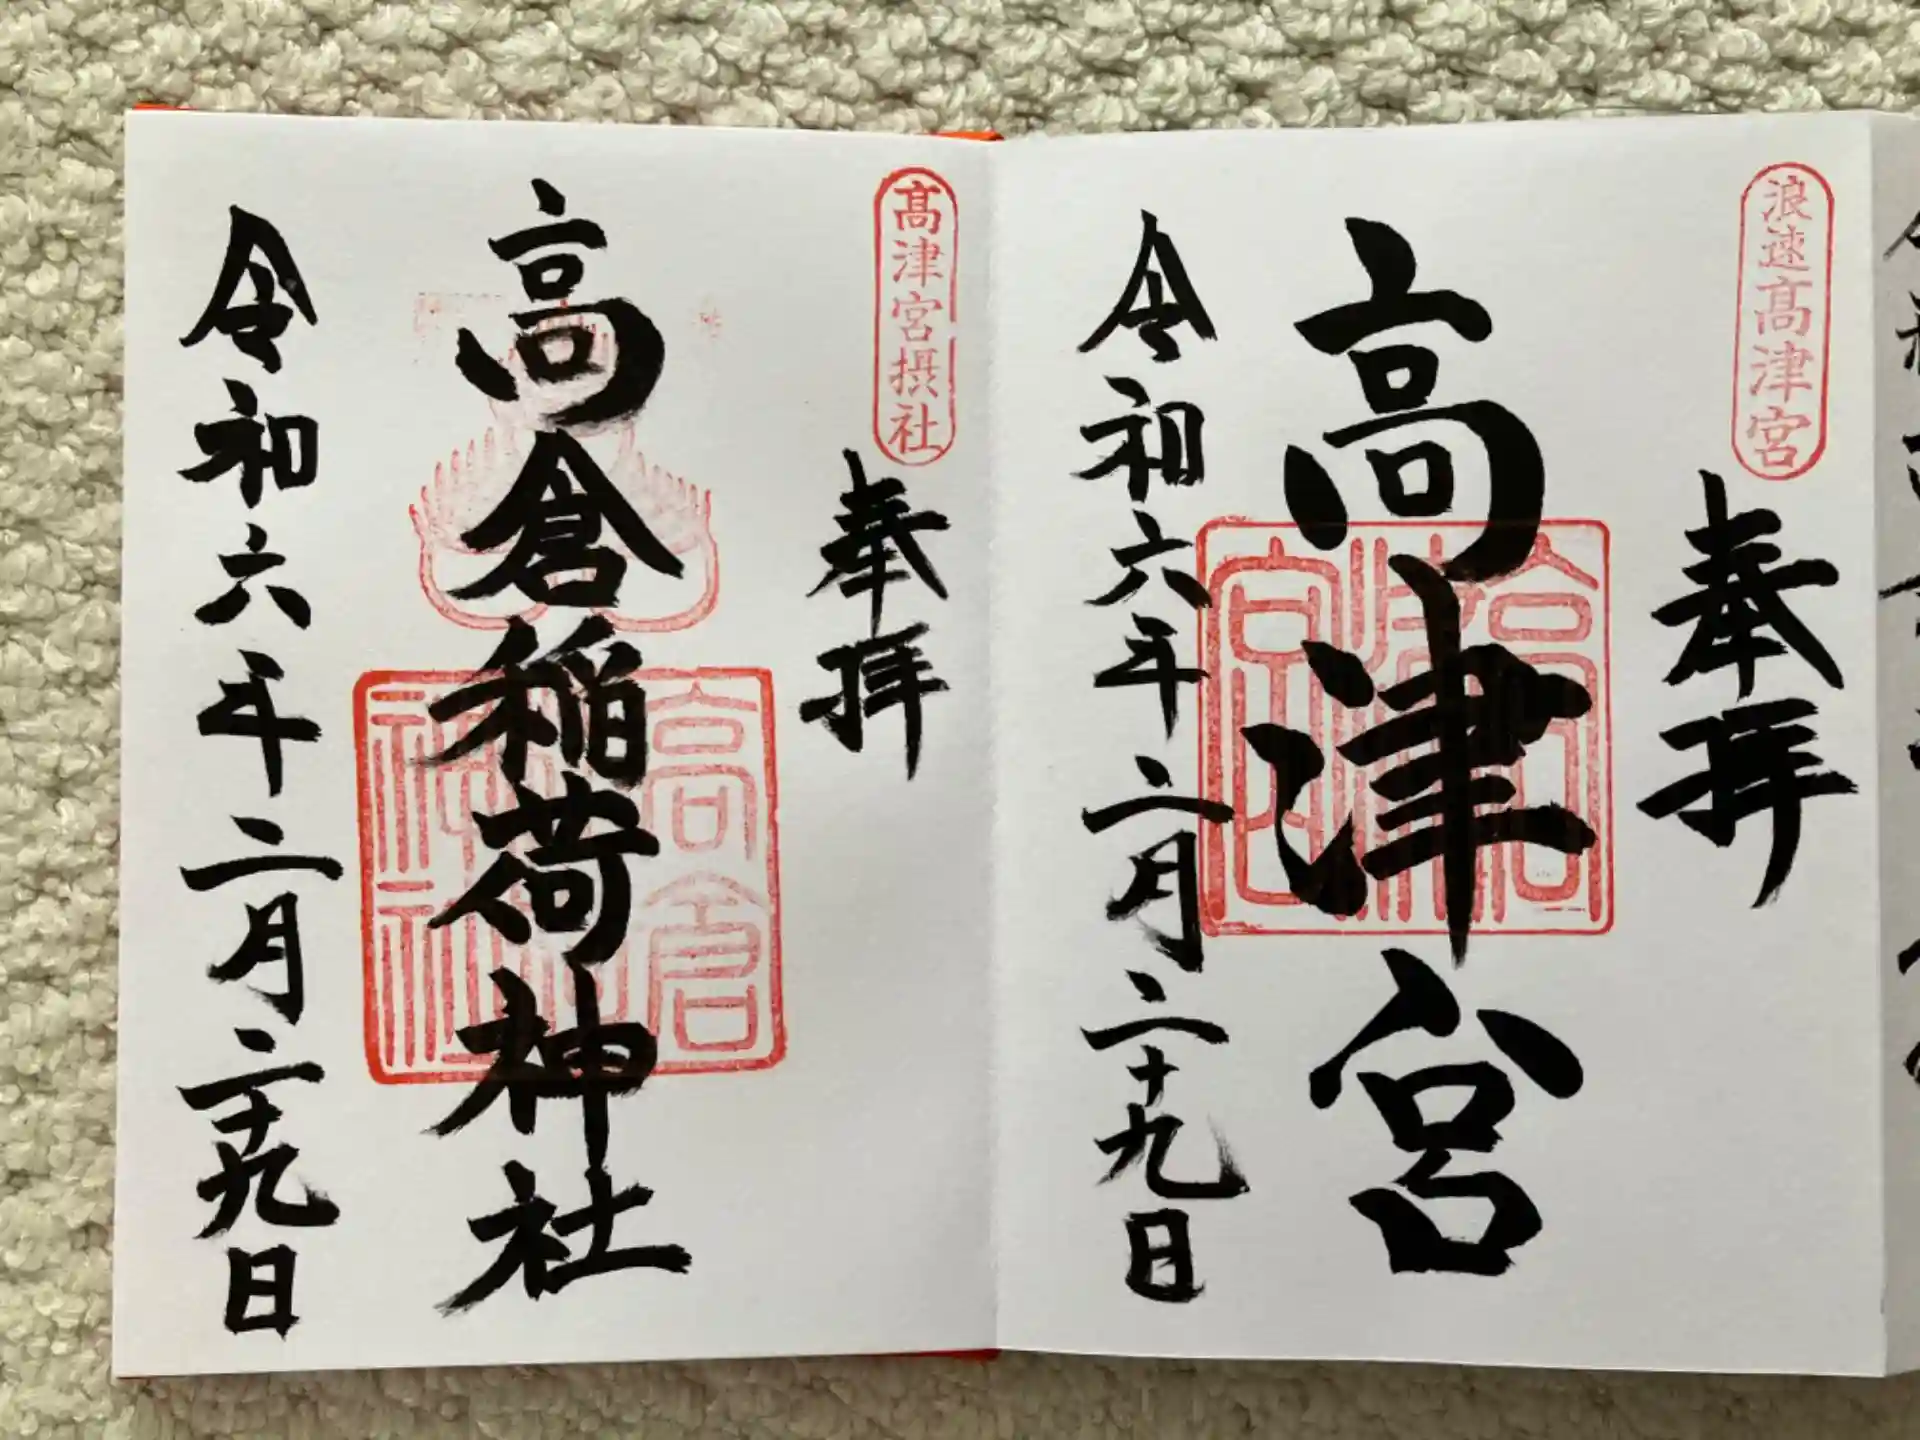 浪速高津宮
奉拝
高津宮
令和六年二月二十九日
髙津宮摂社
奉拝
高倉稲荷神社
令和六年二月二十九日